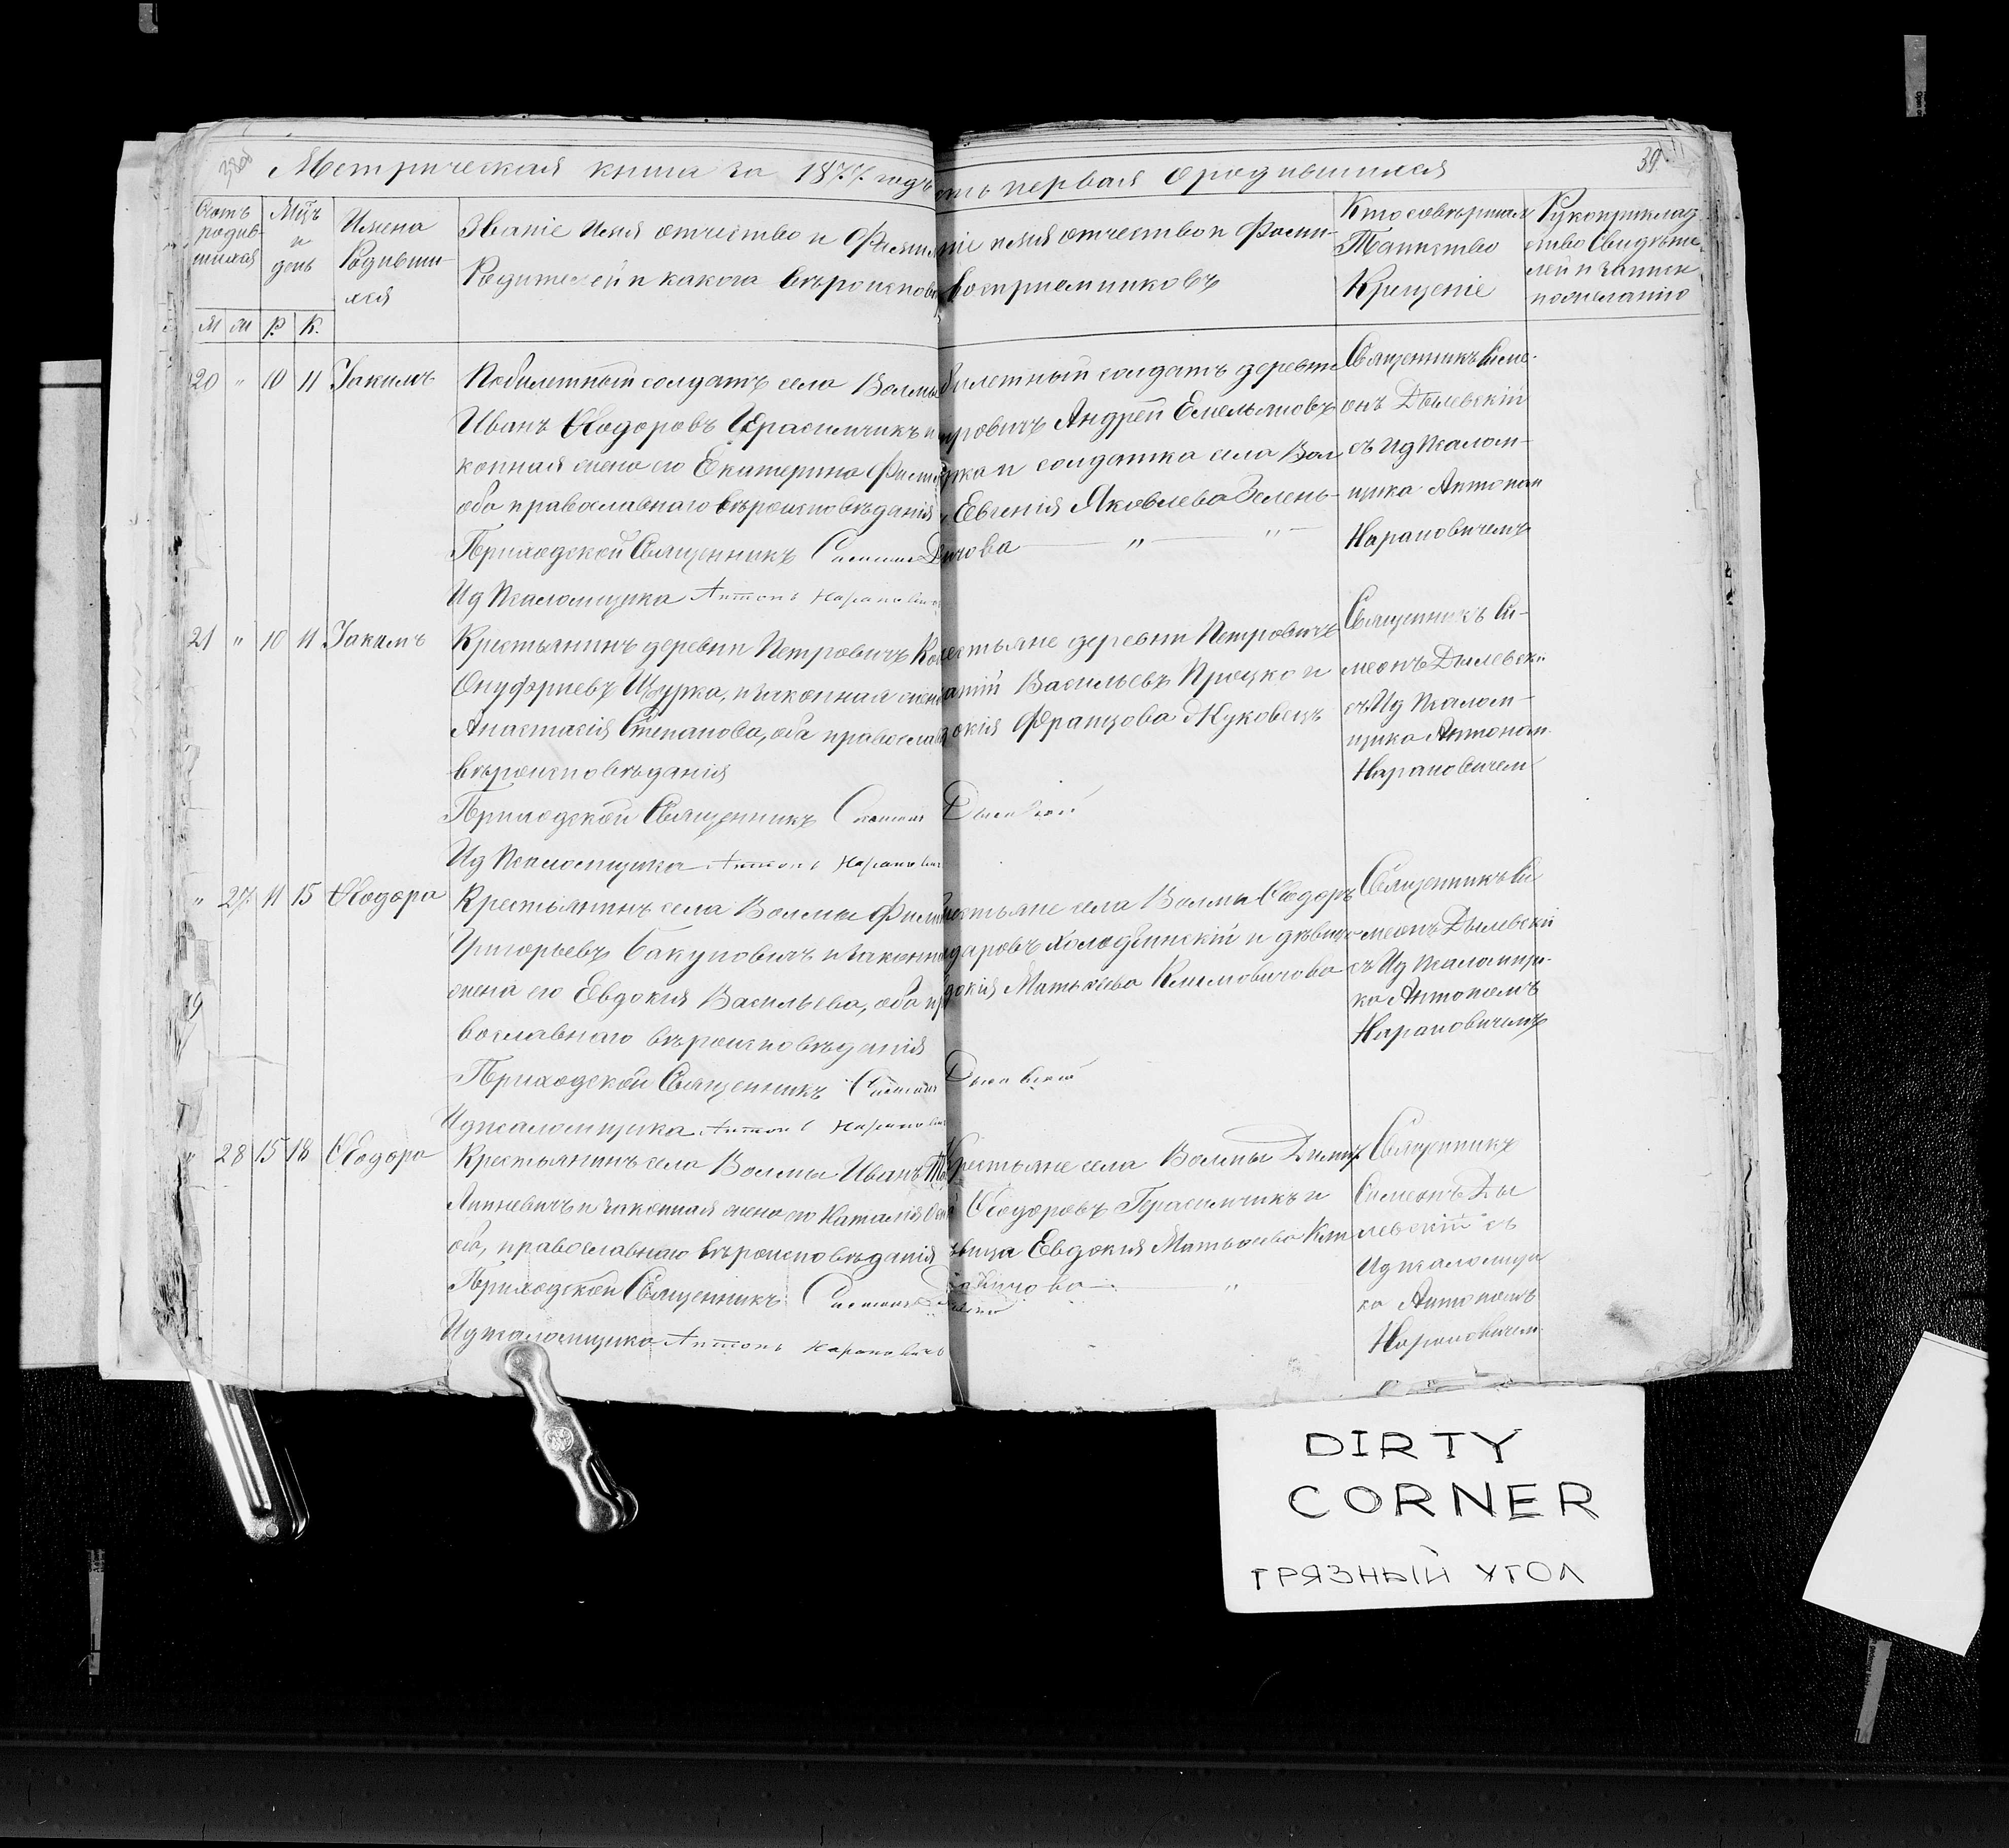 Метрическая книга за 1877 годъ
сть первая о родившихся
39
Счотъ родив-шихся
Мцъ и день
Имена Родивши-хся
Званіе имя отчество и Фамил
Родителей и какого вѣроисповѣ
ніе имя отчество и Фами-
воспріемниковъ
Кто совершал
Таинство
Крещеніе
Рукоприклад
ство Свидѣте-
лей и записи
по желанію
М м Р. К.
20 " 10 11 Іакимъ
Побилетный солдатъ села Волмы
Иванъ Ѳеодоровъ Герасимчикъ и
конная жена его Екатерина
оба православнаго вѣроисповѣданія
Приходской Священникъ Симеонъ
Ид Псаломщика Антонъ Наранович
билетный солдатъ деревни
тровичъ Андрей Емельяновъ
и солдатка села Вол
Евгенія Яковлева Зелень-
" "
Священникъ Симе-
онъ Дылевскій
съ ид псалом-
щика Антоном
Нарановичемъ
21 " 10 11 Іакимъ
Крестьянинъ деревни Петровичъ
Онуфріевъ Щурка, и законная жен
Анастасія Степанова, оба православ
вѣроисповѣданія
Приходской Священникъ Симеонъ Дылевскій
Ид Псаломщика Антонъ Наранович
естьяне деревни Петровичъ
Васильевъ Процко и
окія Францова Жуковецъ
Священникъ Си-
меонъ Дылевскій
съ Ид псалом-
щика Антоном
Нарановичем
" 27 11 15 Ѳеодора
Крестьянинъ села Волмы Фили
Григорьевъ Бакуновичъ и законная
жена его Евдокія Васильева, оба пр
вославнаго вѣроисповѣданія
Приходской Священникъ Симеонъ Дылевскій
Ид псаломщика Антонъ Наранович
естьяне села Волмы Ѳеодоръ
Холодинскій и дѣвица
докія Матѳеева Климовичова
Священникъ Си
меонъ Дылевскій
съ Ид псаломщи-
ка Антономъ
Нарановичемъ
" 28 15 18 Ѳеодора
Крестьянинъ села Волмы Иванъ
и законная жена его Наталія
оба, православнаго вѣроисповѣданія
Приходской Священникъ Симеонъ
Ид псаломщика Антонъ Нарановичъ
Крестьяне села Волмы
Ѳеодоровъ Герасимчикъ и
вица Евдокія Матѳеева Кли
"
Священникъ
Симеонъ Ды
левскій съ
Ид псаломщи
ка Антономъ
Нарановичем
DIRTY
CORNER
ГРЯЗНЫЙ УГОЛ